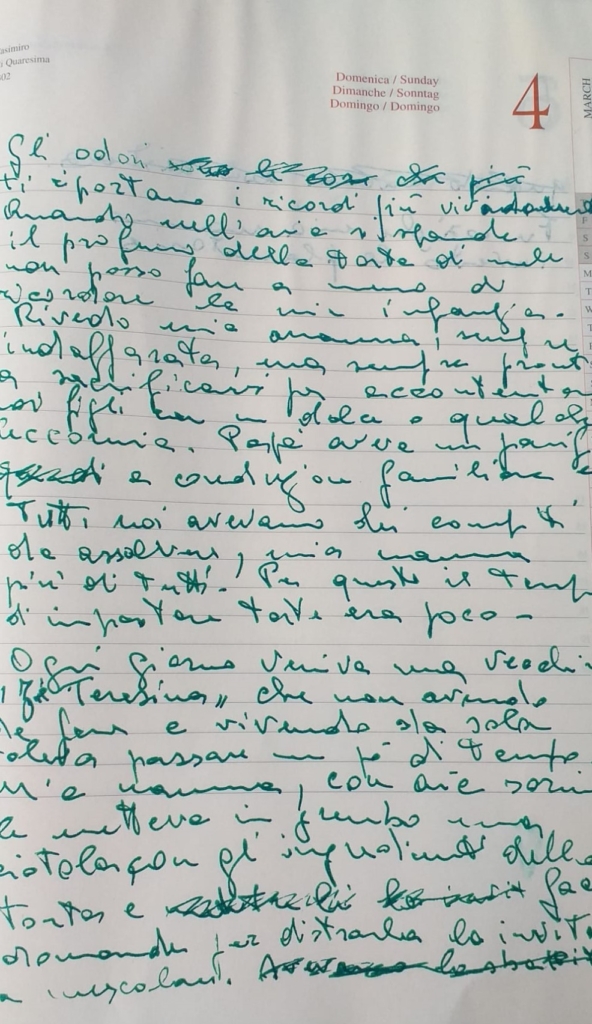 asimiro
i Quaresima
02
Domenica / Sunday
Dimanche / Sonntag
Domingo / Domingo
4
MARCH
Gli odori le cose che più
ti riportano i ricordi più vivi
Quando nell'aria si spande
il profumo della torta di mele
non posso fare a meno di
ricordare la mia infanzia.
Rivedo mia mamma, sempre
indaffarata, ma sempre pront
a sacrificarsi per accontenta
noi figli con un dolce o qualche
leccornia. Papà aveva un panif
a conduzione familiare
Tutti noi avevamo dei compiti
da assolvere, mia mamma
più di tutti. Per questo il temp
di impastare torte era poco -
Ogni giorno veniva una vecchi
"Teresina" che non avendo
da fare e vivendo da sola
voleva passare un pò di tempo
mamma, con aria
le metteva in grembo una
ciotola con gl'ingredienti della
torta e fac
domande per distrarla la invit
a mescolare.